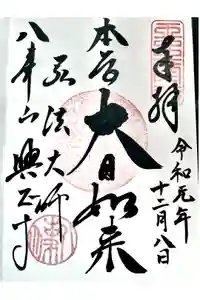 奉拝
令和元年
十二月八日
本尊
大日如来
弘法大師
八峯山興正寺